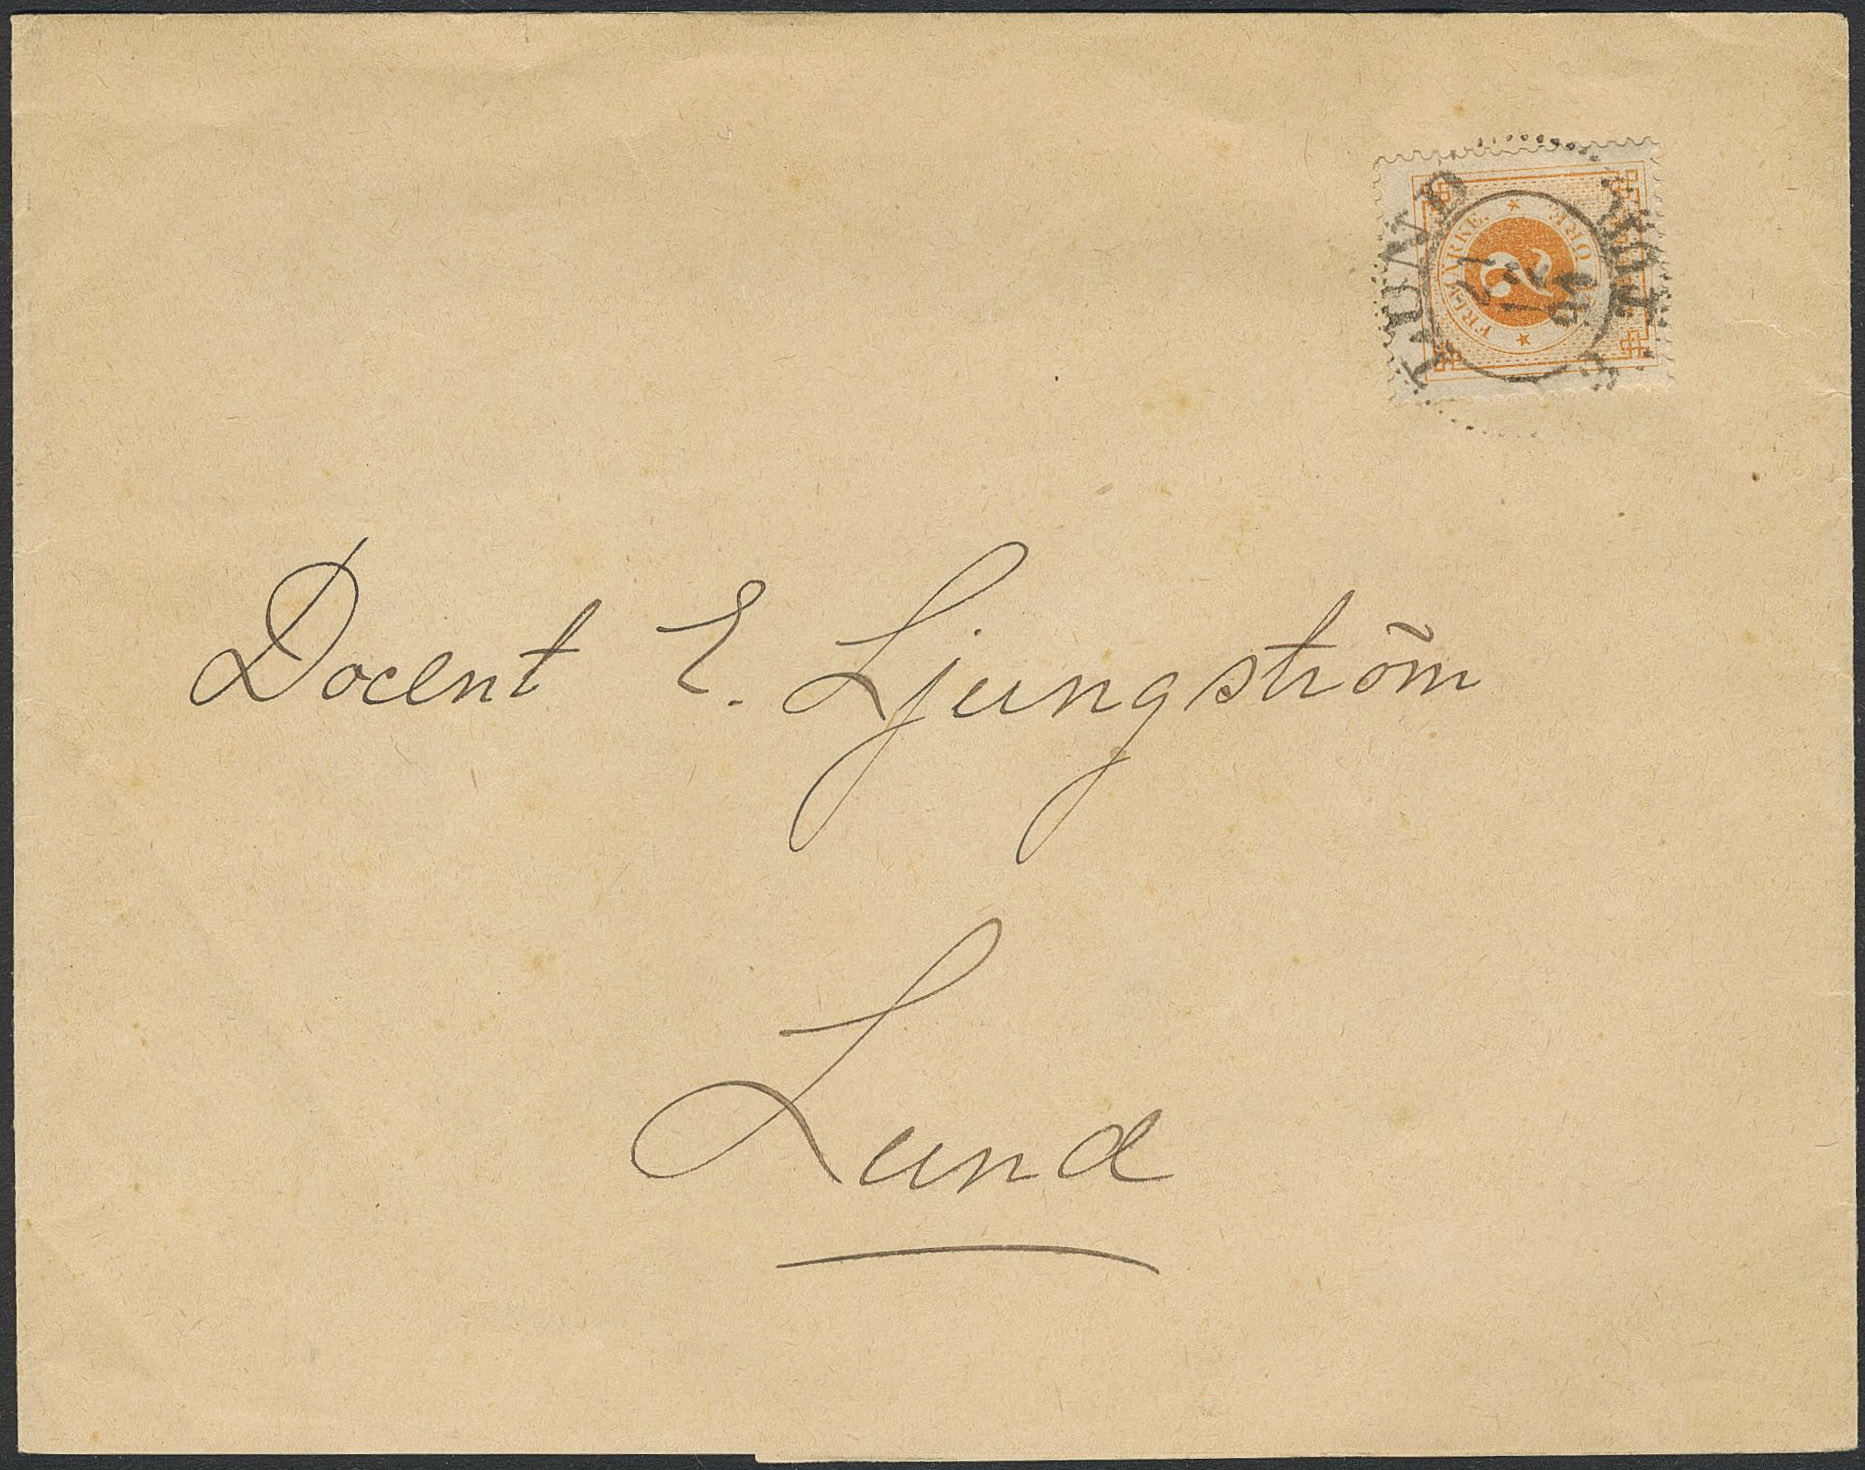 FRIMÄRKE.
2
ÖRE
LUND
TUR
Docent E. Ljungström
Lund